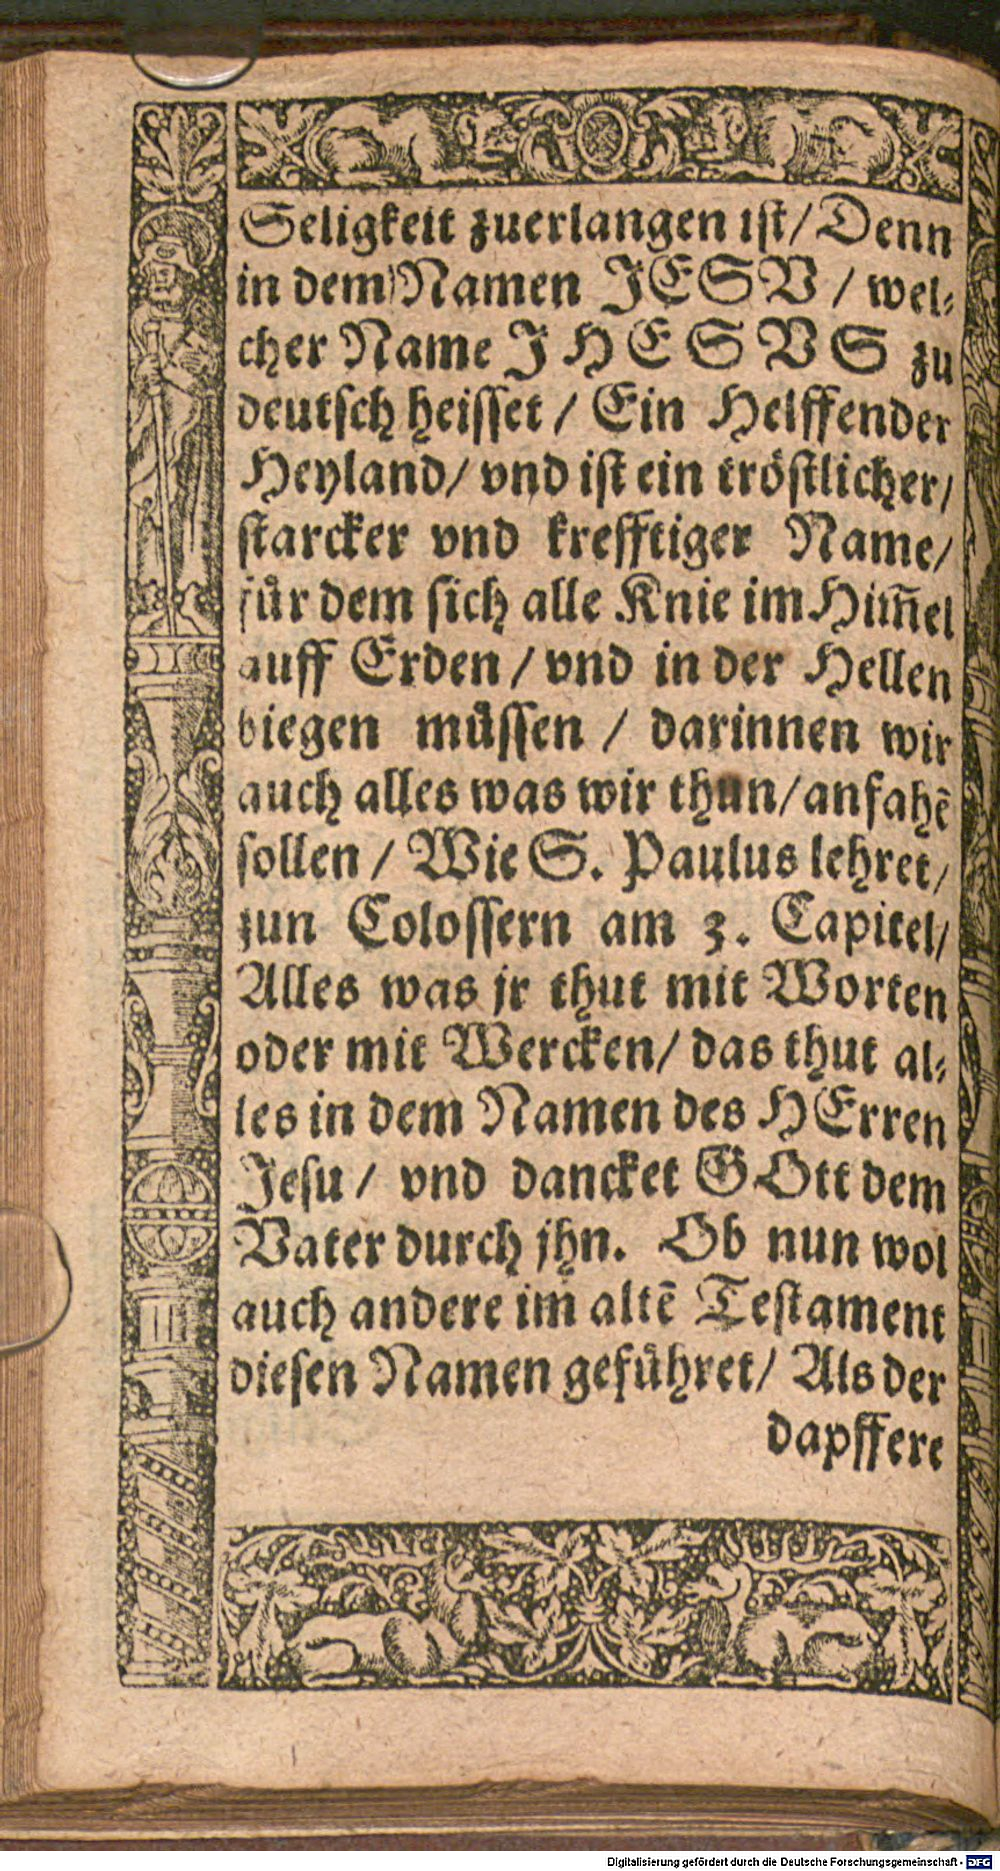 Seligkeit zuerlangen ist/ Denn
in dem Namen JESV / wel⸗
cher Name JHESVS zu
deutsch heisset / Ein Helffender
Heyland/ vnd ist ein tröstlicher/
starcker vnd krefftiger Name/
für dem sich alle Knie im Him̃el
auff Erden / vnd in der Hellen
biegen müssen / darinnen wir
auch alles was wir thun/ anfahẽ
sollen / Wie S. Paulus lehret/
zun Colossern am 3. Capitel/
Alles was jr thut mit Worten
oder mit Wercken/ das thut al⸗
les in dem Namen des HErren
Jesu / vnd dancket GOtt dem
Vater durch jhn. Ob nun wol
auch andere im altẽ Testament
diesen Namen geführet/ Als der
dapffere
Digitalisierung gefördert durch die Deutsche Forschungsgemeinschaft - DFG